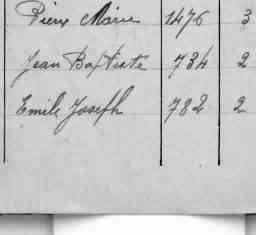 Pierre Marie 1476 3
Jean Baptiste 734 2
Emile Joseph 782 2